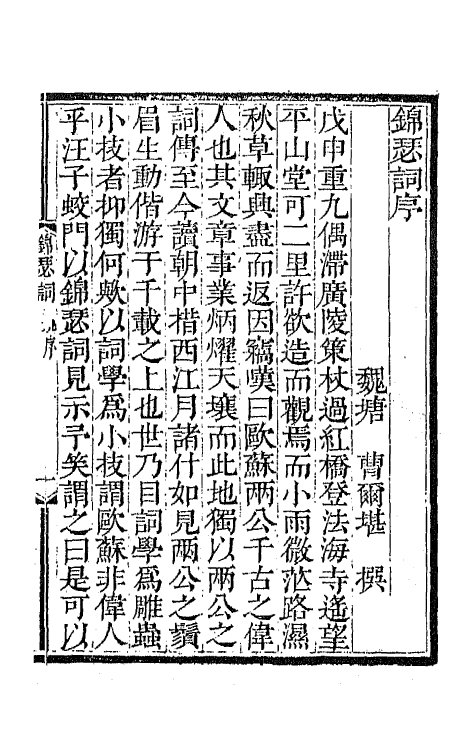 錦瑟詞序
魏塘 曹爾堪 撰
戊申重九偶滯廣陵策杖過紅橋登法海寺遙望
平山堂可二里許欲造而觀焉而小雨微茫路濕
秋草輙興盡而返因竊嘆曰歐蘇兩公千古之偉
人也其文章事業炳燿天壤而此地獨以兩公之
詞傳至今讀朝中楷西江月諸什如見兩公之鬚
眉生動偕游于千載之上也世乃目詞學爲雕蟲
小技者抑獨何歟以詞學爲小技謂歐蘇非偉人
乎汪子蛟門以錦瑟詞見示予笑謂之曰是可以
錦瑟詞 序